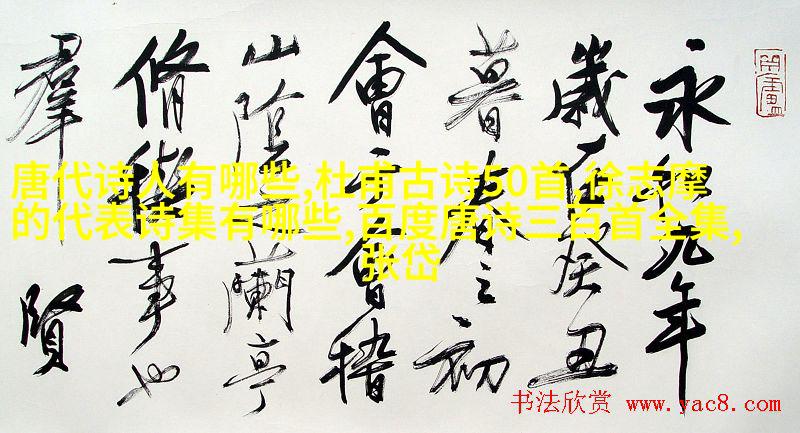 永和九年
歲在癸丑
暮春之初
會于會稽
山陰之蘭亭
脩禊事也
羣賢
唐代诗人有哪些,杜甫古诗50首,徐志摩
的代表诗集有哪些,百度唐诗三百首全集,
张岱
书法欣赏 www.yac8.com